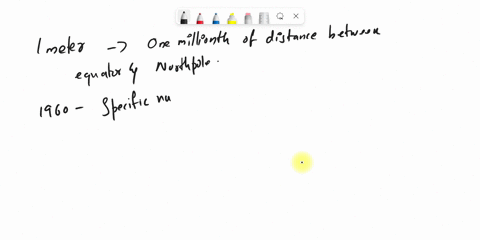 1 meter -> One millionth of distance between
equator & Northpole.
1960 - Specific nu